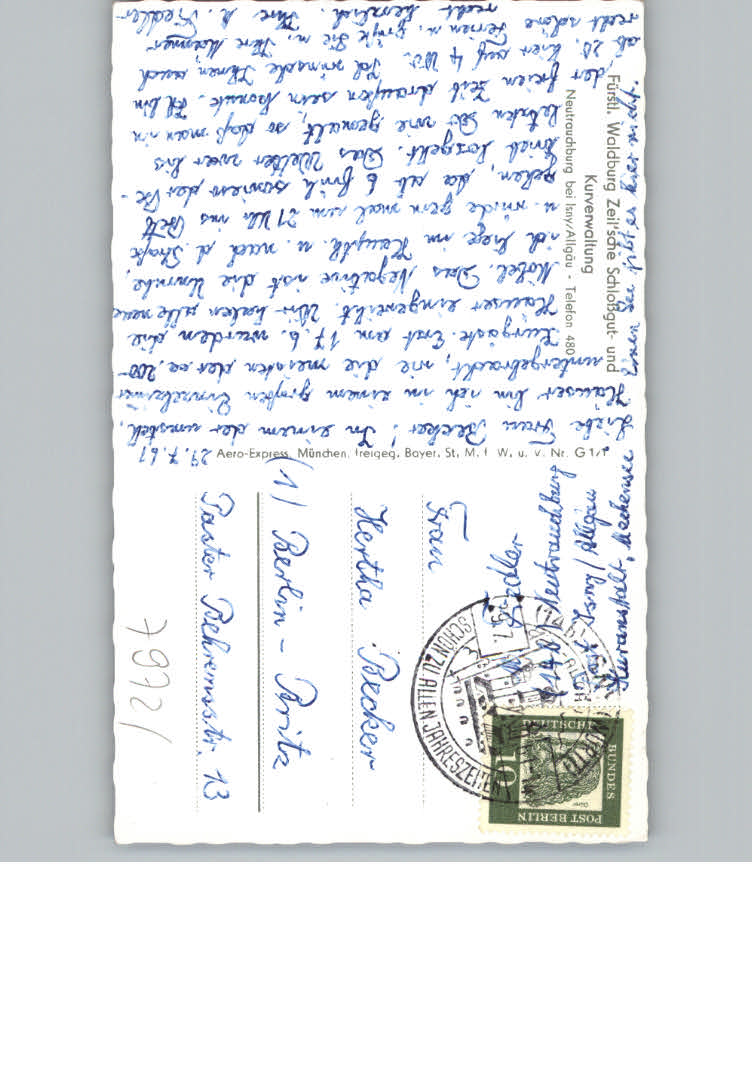 Fürstl. Waldburg Zeil'sche Schloßgut- und
Kurverwaltung
Neutrauchburg bei Isny/Allgäu - Telefon 480
29.7.61
Liebe Frau Becker! In einem der umsteh.
Häuser bin ich in einem großen Einzelzimmer
untergebracht, wie die meisten der ca. 200
Kurgäste. Erst am 17.6. wurden die
Häuser eingeweiht. Wir haben alle neue
Möbel. Das Negative ist die Unruhe,
ich liege im Haupth. u. nach d. Straße
u. würde gern mal um 21 Uhr ins Bett
gehen, da ab 6 früh sowieso der Be-
trieb losgeht. Das Wetter war bis
letzten So wie gemalt, so daß man in
der freien Zeit draußen sein konnte. Ich bin
ab 20. hier auf 4 Wo. Ich wünsche Ihnen auch
recht schöne Ferien u. grüße Sie u. Ihre Männer
recht herzlich Ihre K. Fiedler
Einen See gibt es hier nicht.
Aero-Express, München, freigeg. Bayer. St. M. f. W. u. V. Nr. G 1/1
Fiedler
Neutrauchburg
Isny/Allgäu
Kuranstalt,
SCHÖN ZU ALLEN JAHRESZEITEN
DEUTSCHE
BUNDES
POST BERLIN
10
Dürer
Frau
Hertha Becker
(1) Berlin-Britz
Pastor Behrensstr. 13
7972/